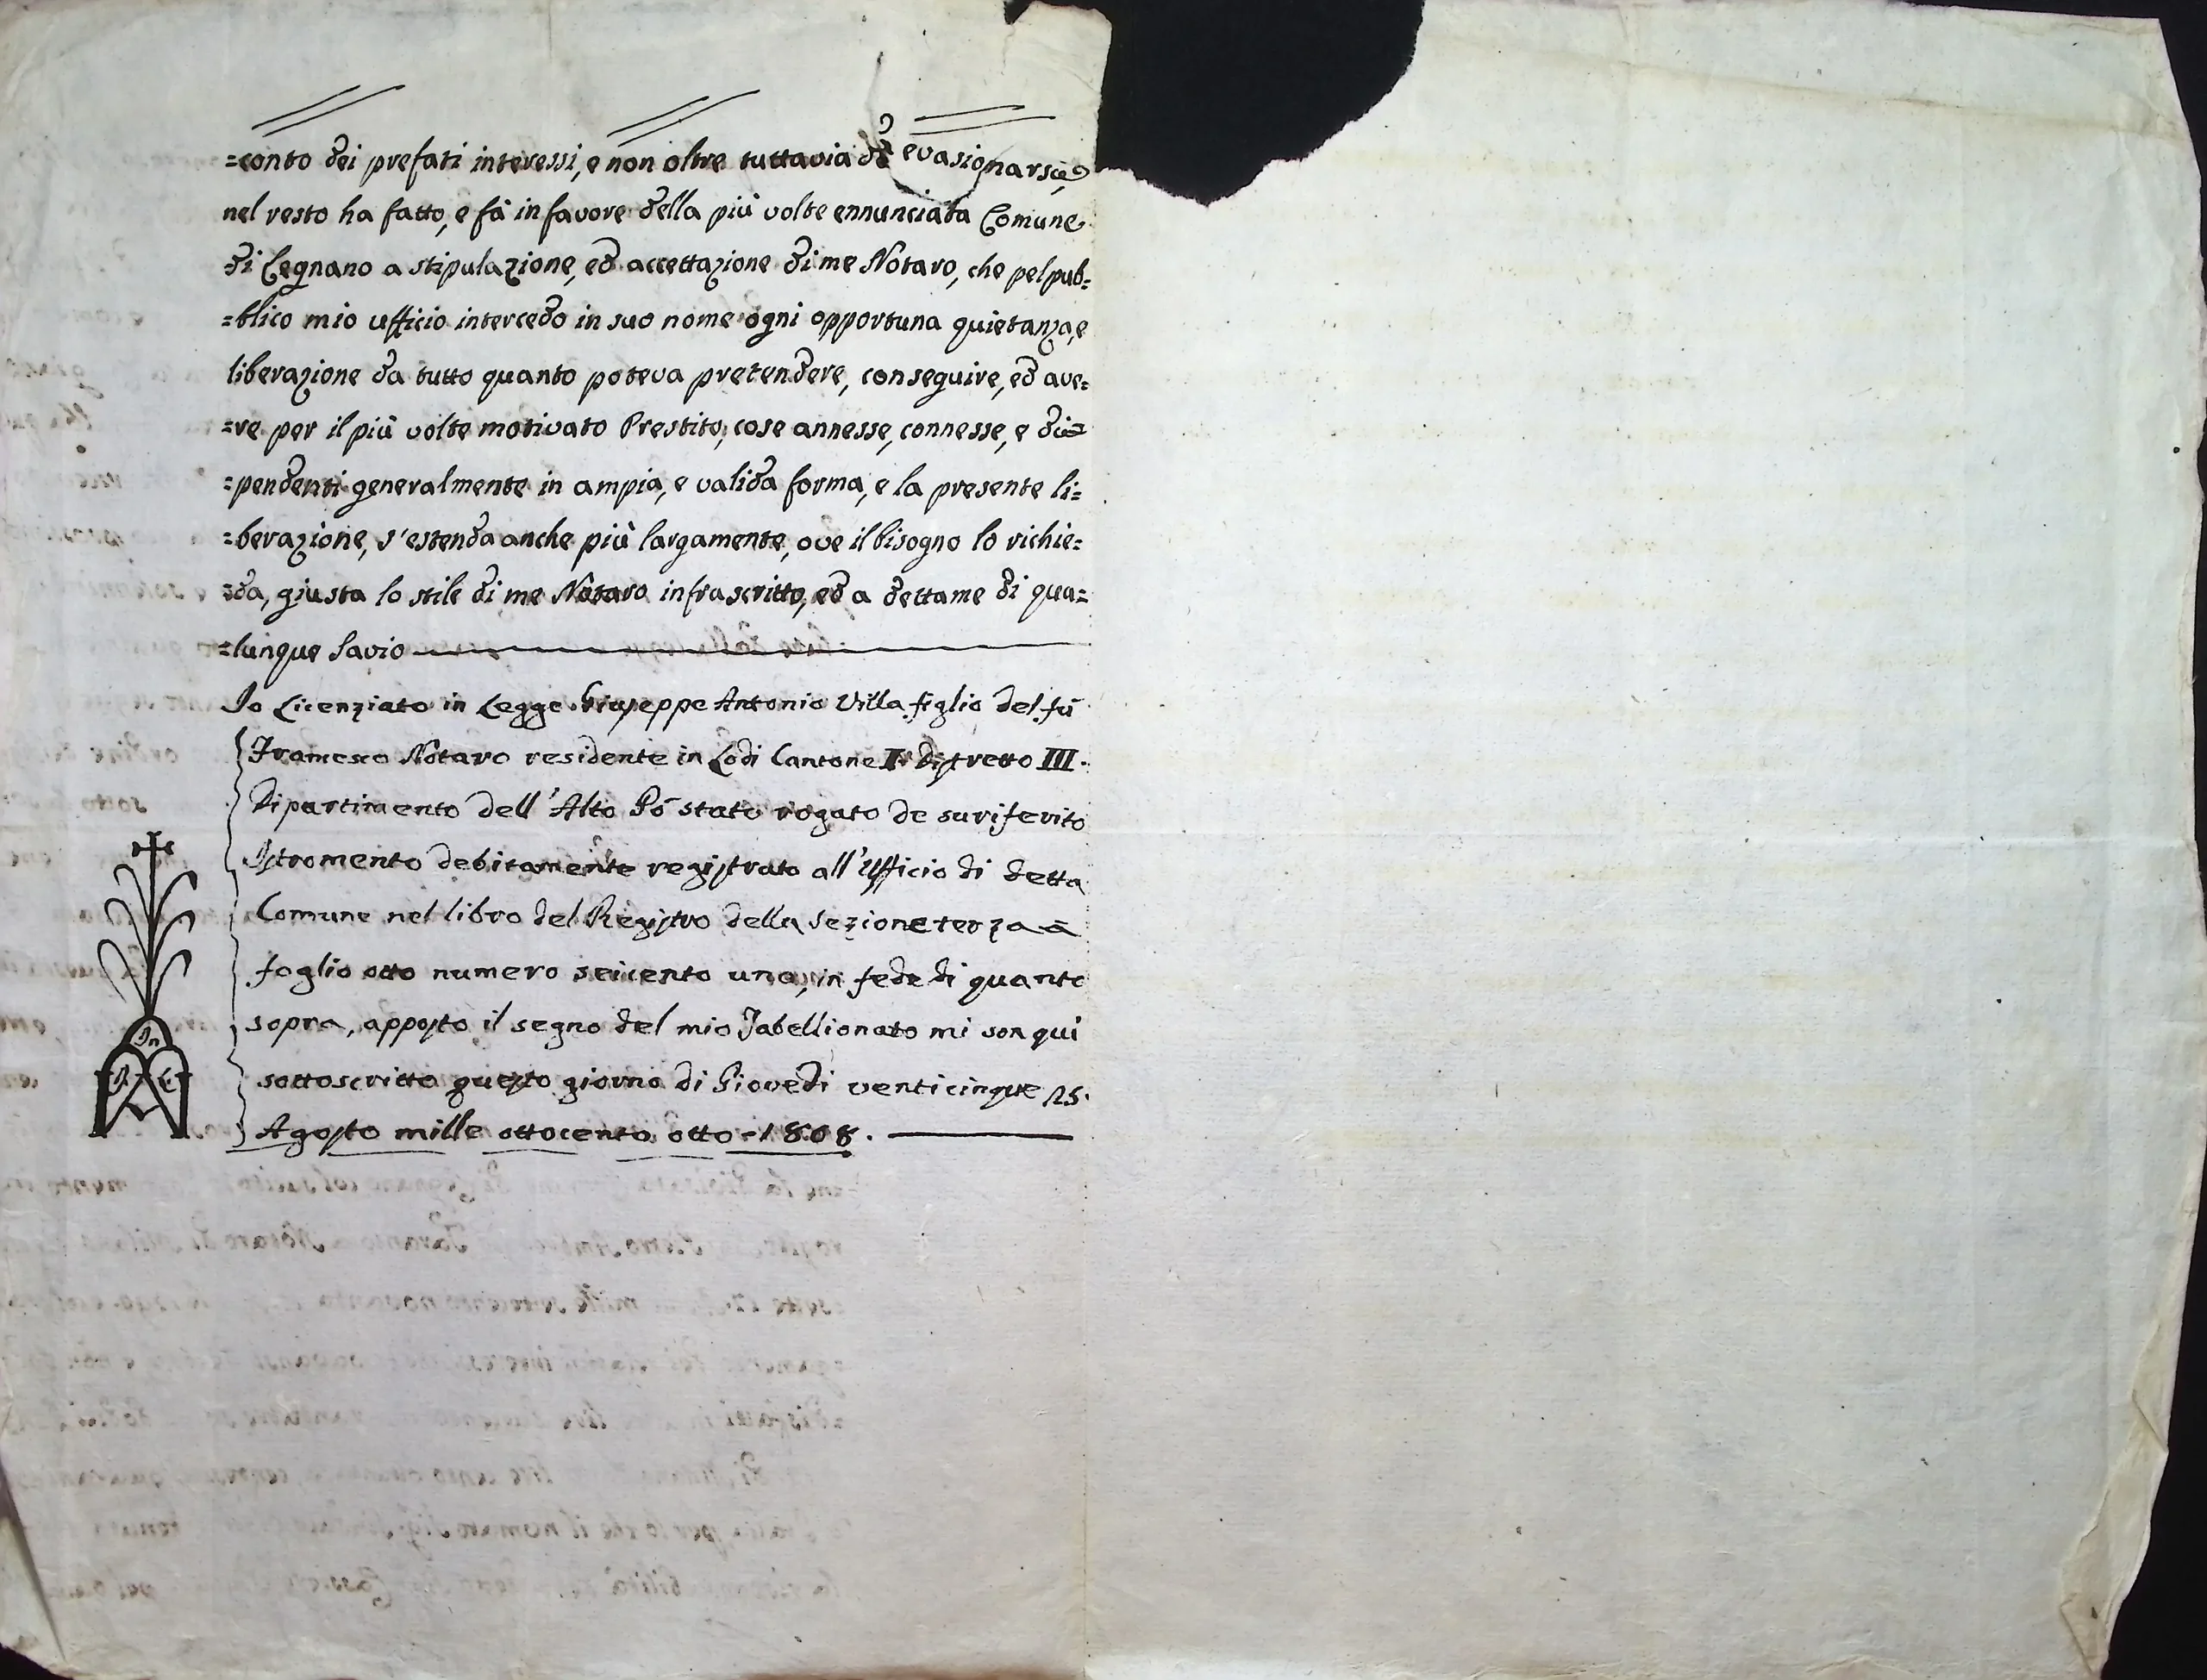 =conto dei prefati interessi, e non oltre tuttavia da evasionarsi, e
nel resto ha fatto, e fà in favore della più volte ennunciata Comune
di Legnano a stipulazione, ed accettazione di me Notaro, che pel pub=
=blico mio ufficio intercedo in suo nome ogni opportuna quietanza, e
liberazione da tutto quanto poteva pretendere, conseguire, ed ave=
=re per il più volte motivato Prestito, cose annesse, connesse, e di=
=pendenti generalmente in ampia, e valida forma, e la presente li=
=berazione, s'estenda anche più largamente, ove il bisogno lo richie=
=da, giusta lo stile di me Notaro infrascritto, ed a dettame di qua=
=lunque Savio
Io Licenziato in Legge Giuseppe Antonio Villa figlio del fù
Francesco Notaro residente in Lodi Cantone I. Distretto III.
Dipartimento dell'Alto Pò stato rogato de suriferito
Istromento debitamente registrato all'Ufficio di detta
Comune nel libro del Registro della Sezione terza à
foglio otto numero seicento uno, in fede di quanto
sopra, apposto il segno del mio Tabellionato mi son qui
sottoscritto questo giorno di Giovedì venticinque 25.
Agosto mille ottocento otto - 1808.
In